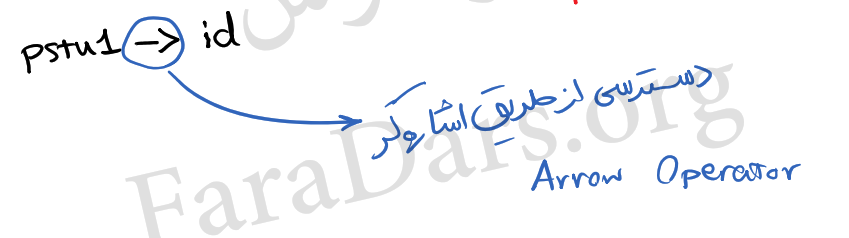 pstu1 -> id
دسترسی از طریق اشاره‌گر
Arrow Operator
FaraDars.org